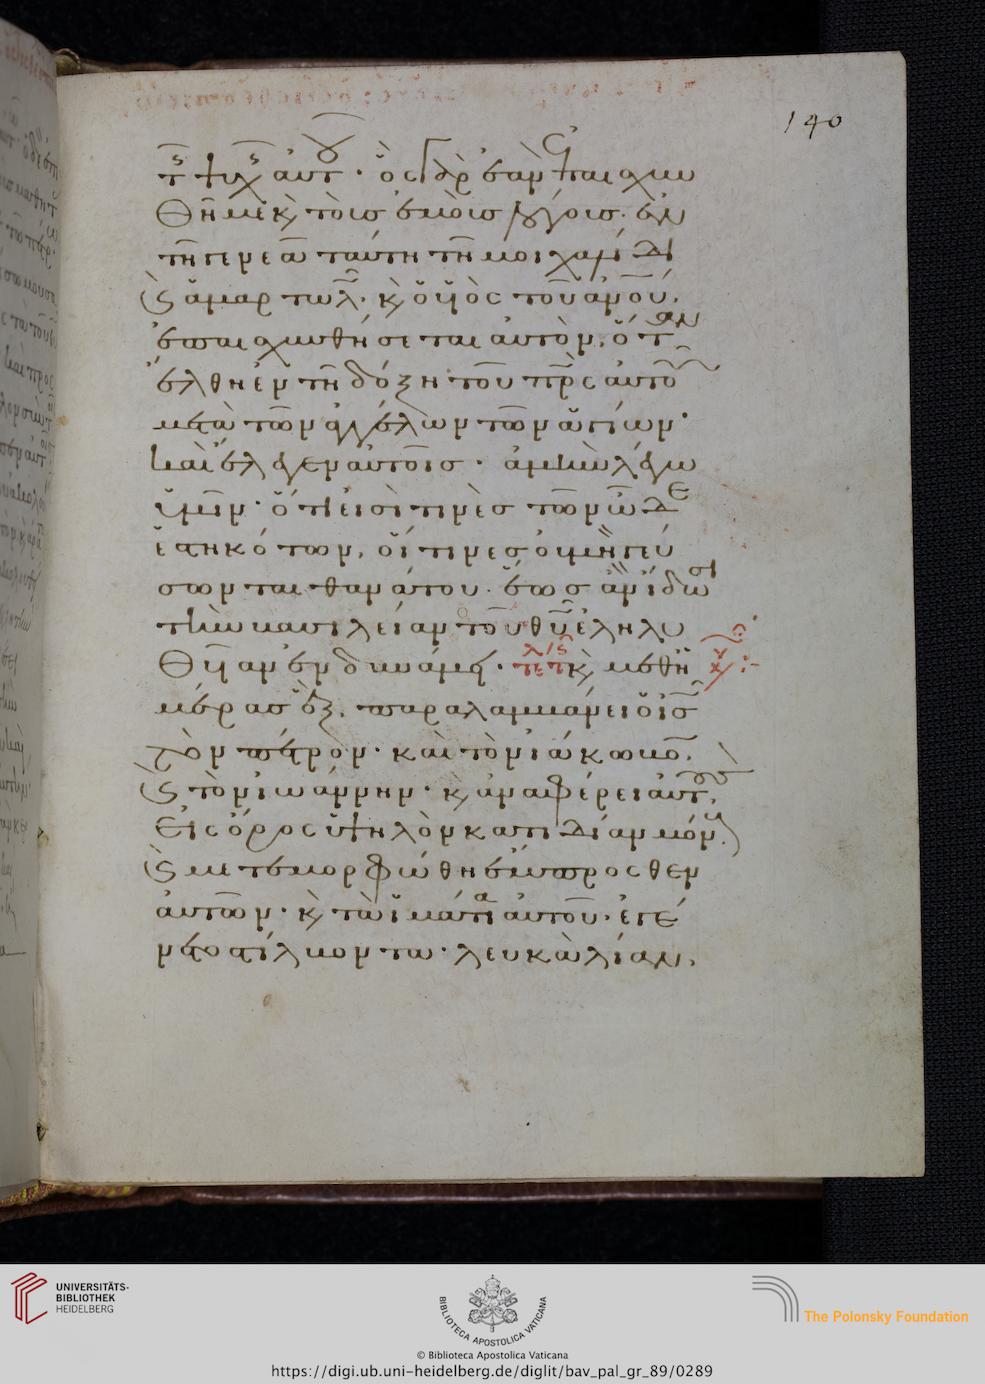 140
τῆς ψυχῆς αὐτοῦ· ὃς γὰρ ἐὰν ἐπαισχυν
θῆ με κ τοὺς ἐμοὺς λόγους· ἐν
τῆ γενεᾶ ταύτη τῆ μοιχαλίδι
κ ἁμαρτωλῶ· κ ὁ υἱὸς τοῦ ἀνου,
ἐπαισχυνθήσεται αὐτὸν, ὅταν
ἔλθη ἐν τῆ δόξη τοῦ πρς αὐτοῦ
μετὰ τῶν ἀγγέλων τῶν ἁγίων·
καὶ ἔλεγεν αὐτοῖς· ἀμὴν λέγω
ὑμῖν· ὅτι εἰσί τινες τῶν ὧδε
ἑστηκότων, οἵτινες οὐ μὴ γεύ
σωνται θανάτου· ἕως ἂν ἴδωσι
τὴν βασιλείαν τοῦ θυ ἐληλυ
θυῖαν ἐν δυνάμει· κ μεθ ἡ
μέρας ἓξ, παραλαμβάνει ὁ ις
τὸν πέτρον· καὶ τὸν ἰάκωβον,
κ τὸν ἰωάννην· κ ἀναφέρει αὐτοὺς,
εἰς ὄρος ὑψηλὸν κατιδίαν μόνους,
κ μετεμορφώθη ἔμπροσθεν
αὐτῶν· κ τὰ ἱμάτια αὐτοῦ· ἐγέ
νετο στίλβοντα· λευκὰ λίαν,
UNIVERSITÄTS-
BIBLIOTHEK
HEIDELBERG
BIBLIOTECA APOSTOLICA VATICANA
The Polonsky Foundation
© Biblioteca Apostolica Vaticana
https://digi.ub.uni-heidelberg.de/diglit/bav_pal_gr_89/0289